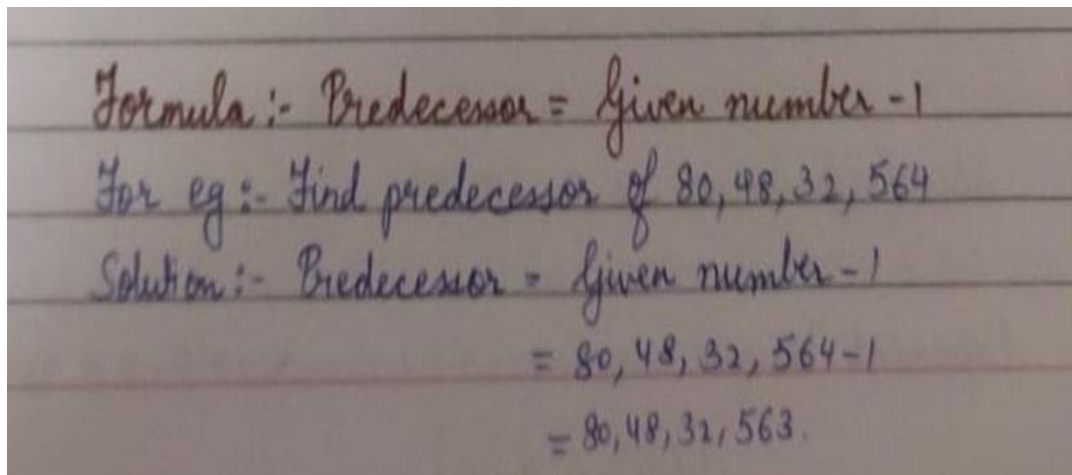 Formula :- Predecessor = Given number - 1
For eg :- Find predecessor of 80,48,32,564
Solution :- Predecessor = Given number - 1
= 80,48,32,564-1
= 80,48,32,563.